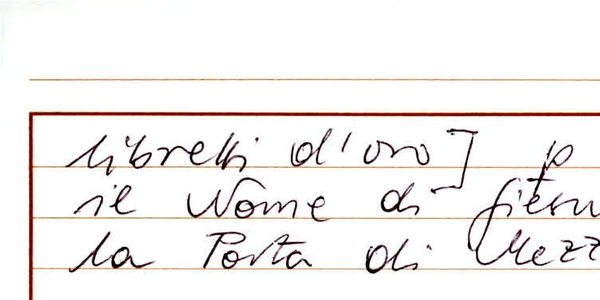 libretti d'oro] p
il Nome di Giesu
la Porta di Mezz